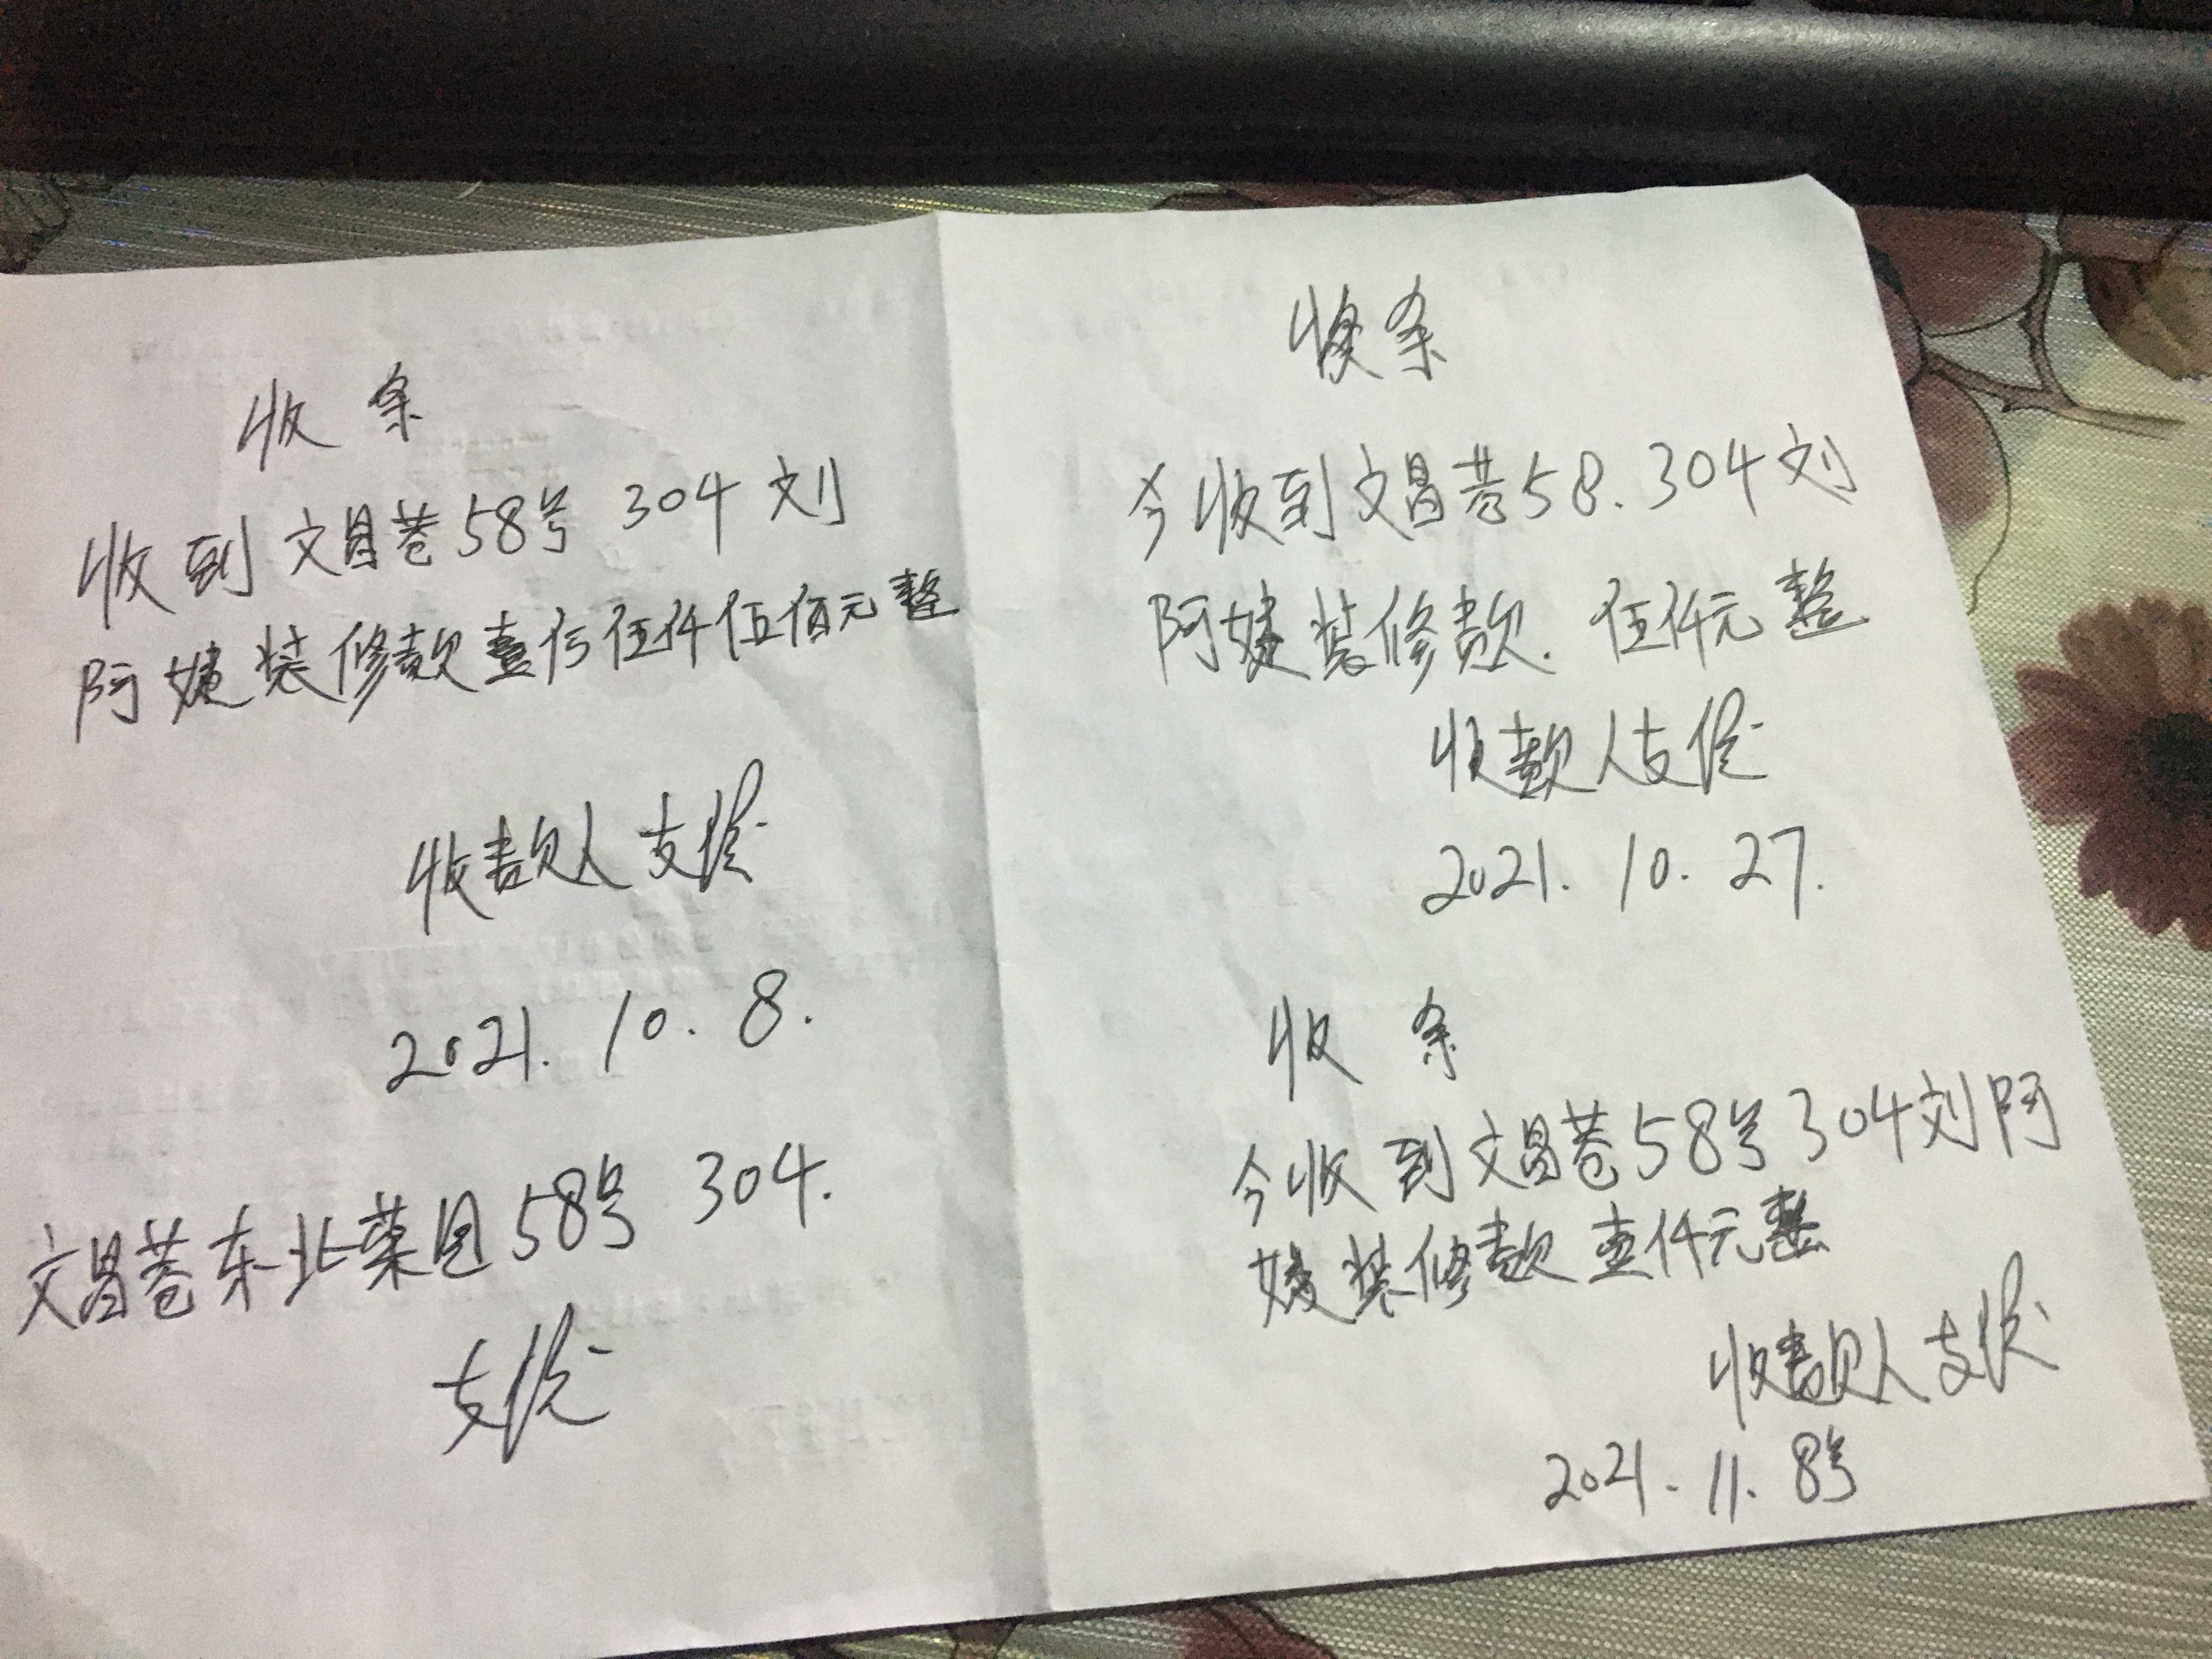 收条
收到文昌巷58号 304 刘
阿姨装修款壹仟伍仟伍佰元整
收款人 支俊
2021. 10. 8.
文昌巷东北菜园58号 304.
支俊
收条
今收到文昌巷58. 304刘
阿姨装修款. 伍仟元整
收款人支俊
2021. 10. 27.
收条
今收到文昌巷58号304刘阿
姨装修款壹仟元整
收款人支俊
2021. 11. 8号